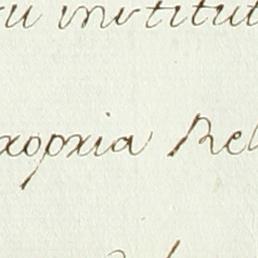 u institut
xopxia Rel